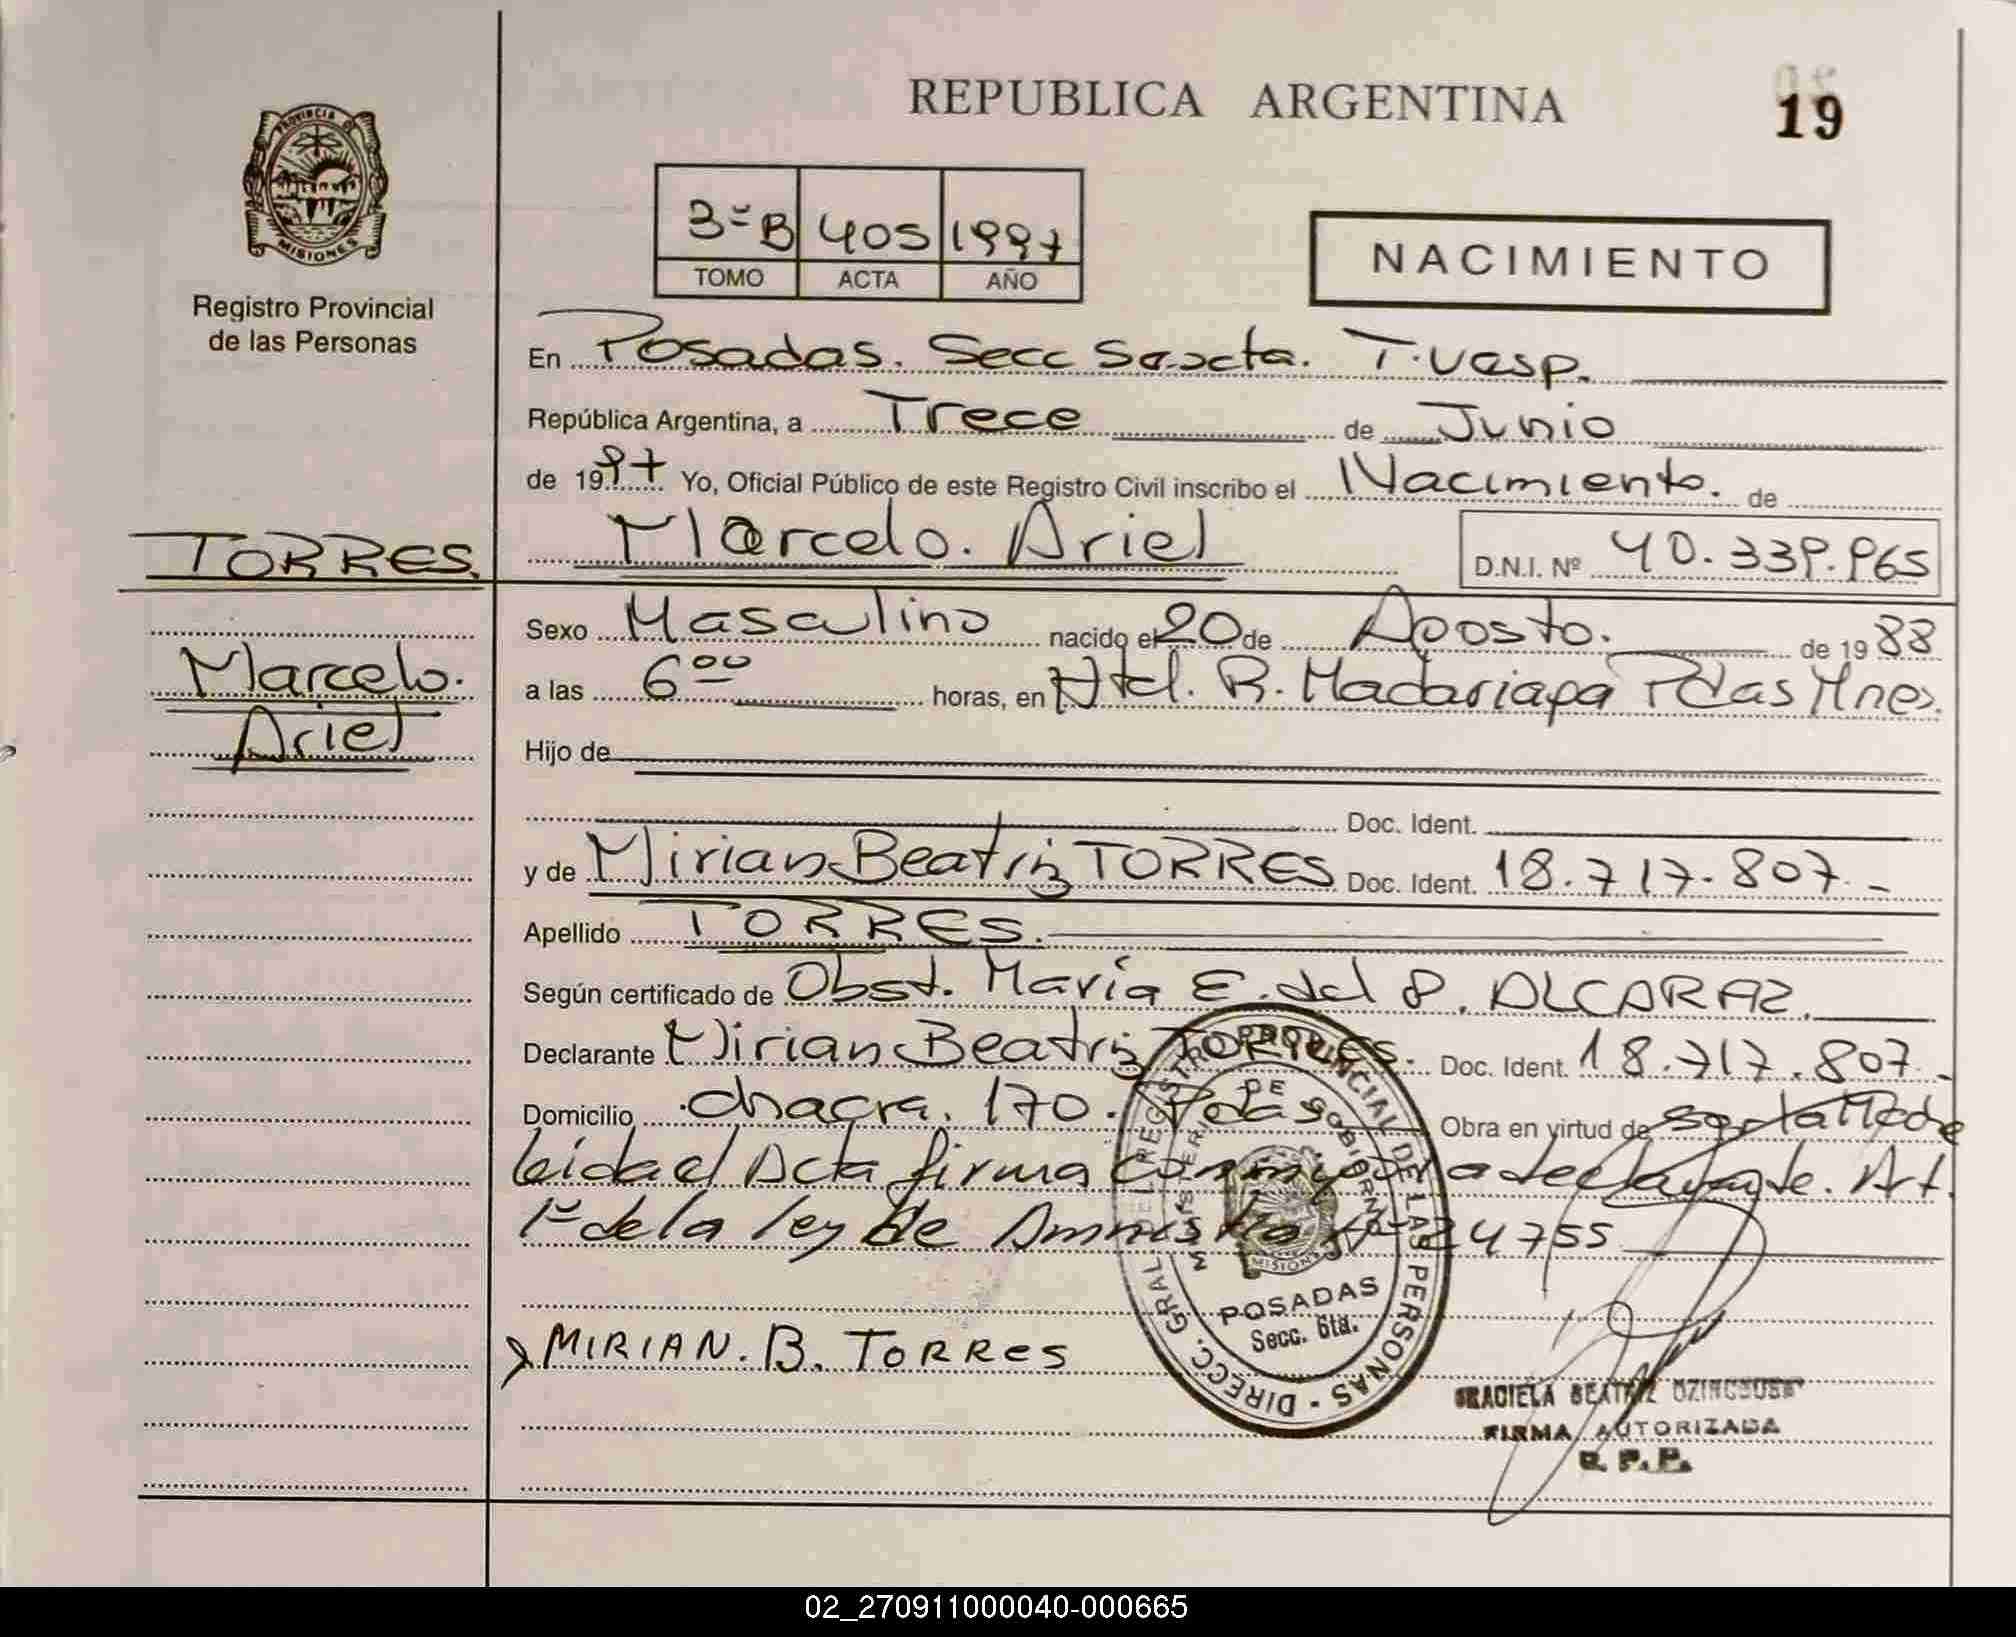 REPUBLICA ARGENTINA
19
PROVINCIA DE
MISIONES
Registro Provincial
de las Personas
3º B 405 1997
TOMO ACTA AÑO
NACIMIENTO
En Posadas. Secc Sexta. T. Vesp.
República Argentina, a Trece de Junio
de 1997 Yo, Oficial Público de este Registro Civil inscribo el Nacimiento. de
Marcelo. Ariel D.N.I. Nº 40.339.965
TORRES.
Marcelo.
Ariel
Sexo Masculino nacido el 20 de Agosto. de 1988
a las 6 00 horas, en Htal. R. Madariaga Pdas Mnes.
Hijo de
Doc. Ident.
y de Mirian Beatriz TORRES Doc. Ident. 18.717.807.-
Apellido TORRES.
Según certificado de Obst. María E. del P. ALCARAZ.
Declarante Mirian Beatriz TORRES. Doc. Ident. 18.717.807.-
Domicilio chacra. 170. Pdas Obra en virtud de ser la Madre
leida el Acta firma conmigo la declarante. Art.
1º de la ley de Amnistia Nº 24755
MIRIAN. B. TORRES
DIRECC. GRAL. DEL REGISTRO PROVINCIAL DE LAS PERSONAS
MINISTERIO DE GOBIERNO
MISIONES
POSADAS
Secc. 6ta.
GRACIELA BEATRIZ
FIRMA AUTORIZADA
R. P. P.
02_270911000040-000665